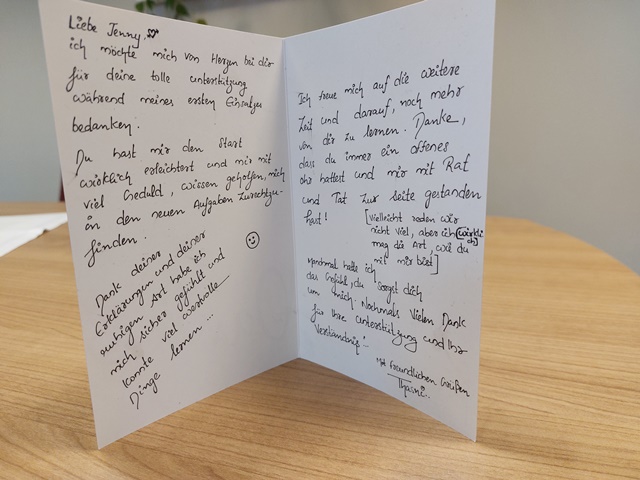 Liebe Jenny,
ich möchte mich von Herzen bei dir
für deine tolle unterstützung
während meines ersten Einsatzes
bedanken.
Du hast mir den Start
wirklich erleichtert und mir mit
viel Geduld, wissen geholfen, mich
in den neuen Aufgaben zurechtzu-
finden.
Dank deiner
Erklärungen und deiner
ruhigen Art habe ich
mich sicher gefühlt und
konnte viel wertvolle
Dinge lernen ...
Ich freue mich auf die weitere
Zeit und darauf, noch mehr
von dir zu lernen. Danke,
dass du immer ein offenes
ohr hattest und mir mit Rat
und Tat zur seite gestanden
hast!
[vielleicht reden wir
nicht viel, aber ich (wirklich)
mag die Art, wie du
mit mir bist]
Manchmal hatte ich
das Gefühl, du sorgst dich
um mich. Nochmals vielen Dank
für Ihre unterstützung und Ihr
Verständnis!
Mit freundlichen Grüßen